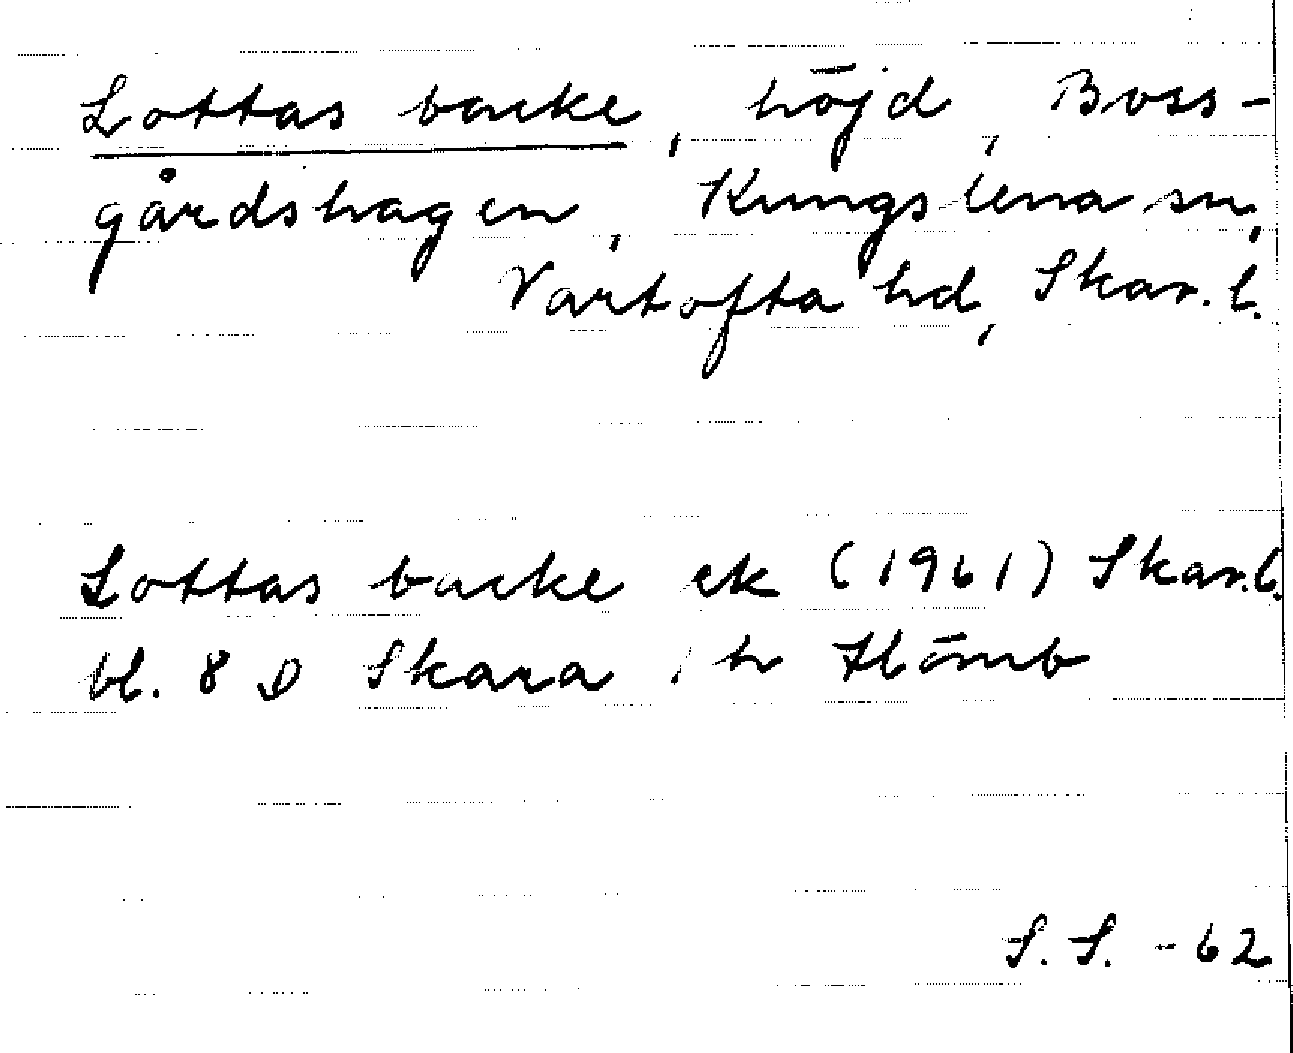 Lottas backe, höjd, Boss-
gårdshagen, Kungslena sn,
Vartofta hd, Skar. l.
Lottas backe ek (1961) Skar. l.
bl. 8 D Skara, h Hömb
S. S. -62